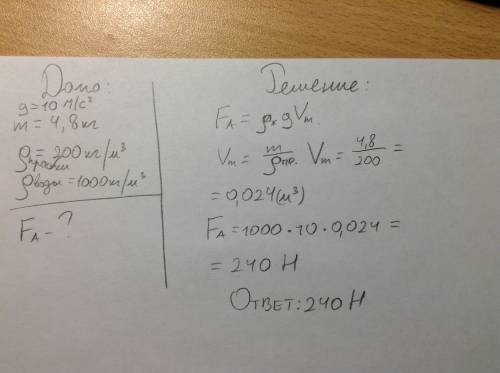 Дано:
g = 10 м/с²
m = 4,8 кг
ρпробки = 200 кг/м³
ρводы = 1000 кг/м³
FA - ?
Решение:
FA = ρж g Vт.
Vт = m/ρпр. Vт = 4,8/200 =
= 0,024 (м³)
FA = 1000 · 10 · 0,024 =
= 240 Н
Ответ: 240 Н